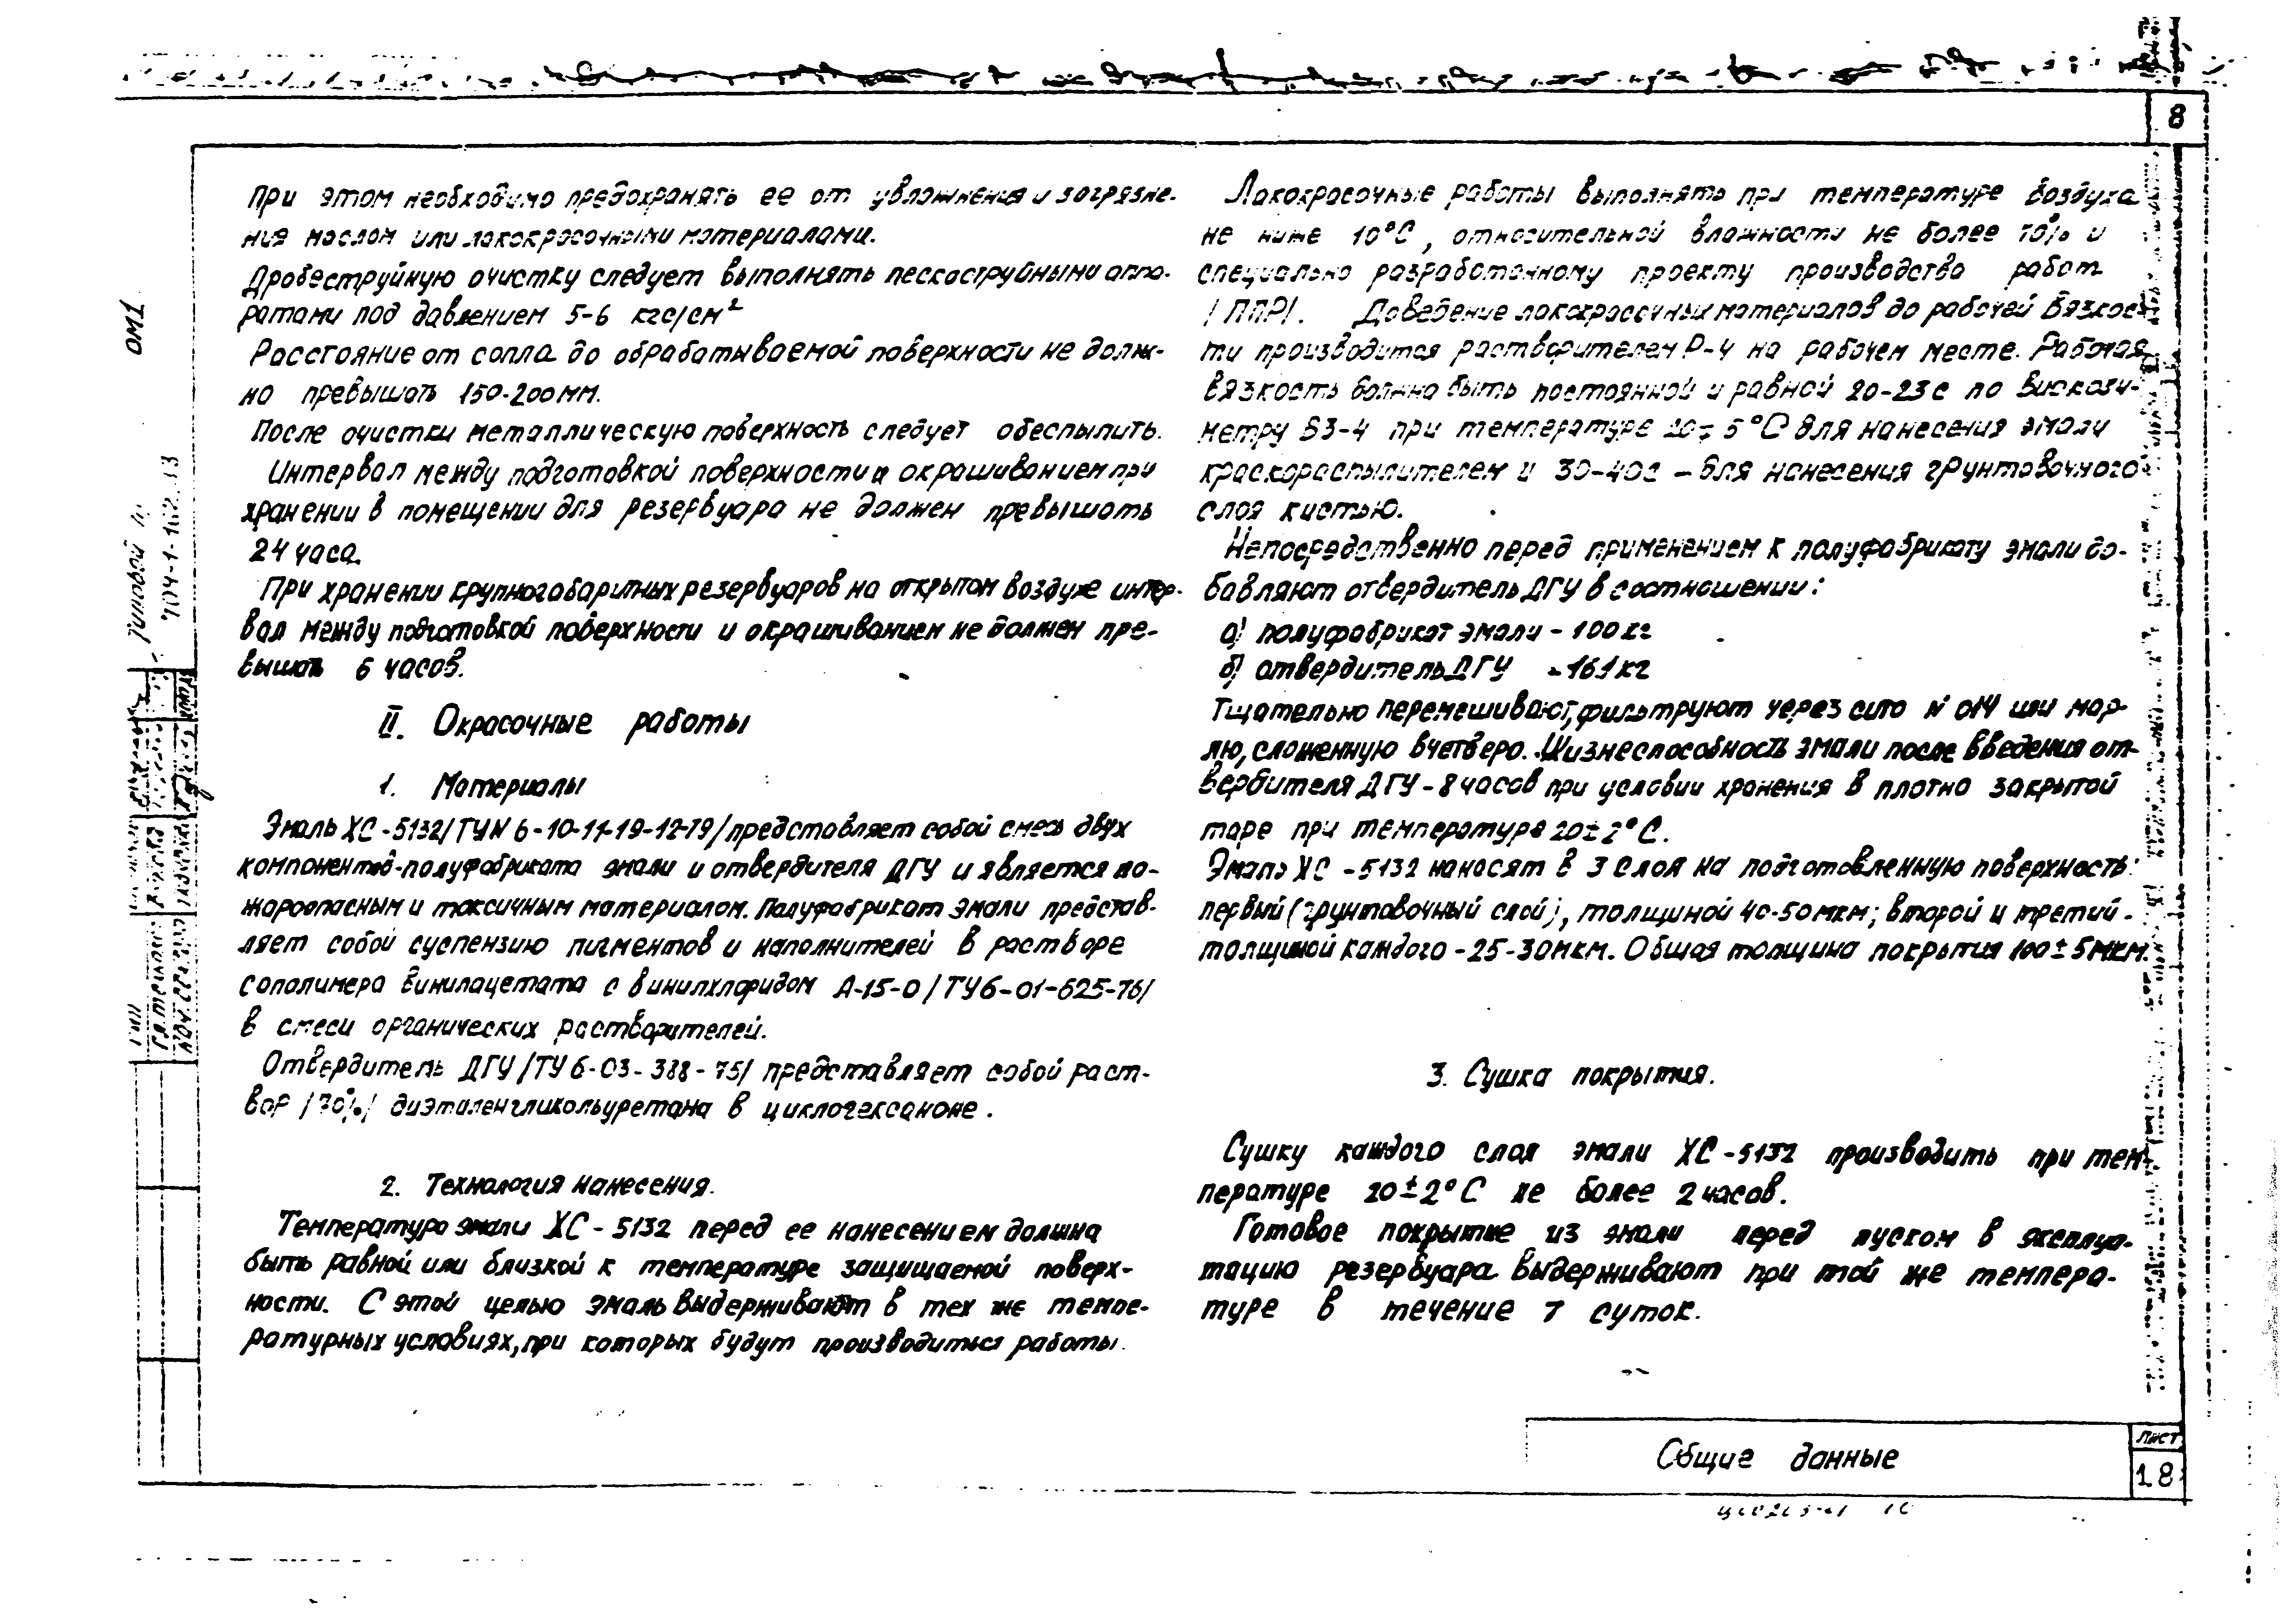 8
При этом необходимо предохранять ее от увлажнения и загрязне-
ния маслом или лакокрасочными материалами.
Дробеструйную очистку следует выполнять пескоструйными аппа-
ратами под давлением 5-6 кгс/см²
Расстояние от сопла до обрабатываемой поверхности не долж-
но превышать 150-200 мм.
После очистки металлическую поверхность следует обеспылить.
Интервал между подготовкой поверхности и окрашиванием при
хранении в помещении для резервуара не должен превышать
24 часа.
При хранении крупногабаритных резервуаров на открытом воздухе интер-
вал между подготовкой поверхности и окрашиванием не должен пре-
вышать 6 часов.
II. Окрасочные работы
1. Материалы
Эмаль ХС-5132/ТУ N 6-10-11-19-12-79/ представляет собой смесь двух
компонентов-полуфабриката эмали и отвердителя ДГУ и является по-
жароопасным и токсичным материалом. Полуфабрикат эмали представ-
ляет собой суспензию пигментов и наполнителей в растворе
сополимера винилацетата с винилхлоридом А-15-0 /ТУ6-01-625-76/
в смеси органических растворителей.
Отвердитель ДГУ/ТУ 6-03-388-75/ представляет собой раст-
вор /70%/ диэтиленгликольуретана в циклогексаноне.
2. Технология нанесения.
Температура эмали ХС-5132 перед ее нанесением должна
быть равной или близкой к температуре защищаемой поверх-
ности. С этой целью эмаль выдерживают в тех же темпе-
ратурных условиях, при которых будут производиться работы.
Лакокрасочные работы выполнять при температуре воздуха
не ниже 10°С, относительной влажности не более 70% и
специально разработанному проекту производства работ
/ППР/. Доведение лакокрасочных материалов до рабочей вязкос-
ти производится растворителем Р-4 на рабочем месте. Рабочая
вязкость должна быть постоянной и равной 20-23 с по вискози-
метру ВЗ-4 при температуре 20± 5°С для нанесения эмали
краскораспылителем и 30-40с - для нанесения грунтовочного
слоя кистью.
Непосредственно перед применением к полуфабрикату эмали до-
бавляют отвердитель ДГУ в соотношении:
а) полуфабрикат эмали - 100 кг
б) отвердитель ДГУ - 16,1 кг
Тщательно перемешивают, фильтруют через сито N 014 или мар-
лю, сложенную вчетверо. Жизнеспособность эмали после введения от-
вердителя ДГУ - 8 часов при условии хранения в плотно закрытой
таре при температуре 20±2°С.
Эмаль ХС-5132 наносят в 3 слоя на подготовленную поверхность:
первый (грунтовочный слой), толщиной 40-50 мкм; второй и третий -
толщиной каждого - 25-30 мкм. Общая толщина покрытия 100±5 мкм.
3. Сушка покрытия.
Сушку каждого слоя эмали ХС-5132 производить при тем-
пературе 20±2°С не более 2 часов.
Готовое покрытие из эмали перед пуском в эксплуа-
тацию резервуара выдерживают при той же темпера-
туре в течение 7 суток.
Общие данные
Лист
1.8
ОМ1